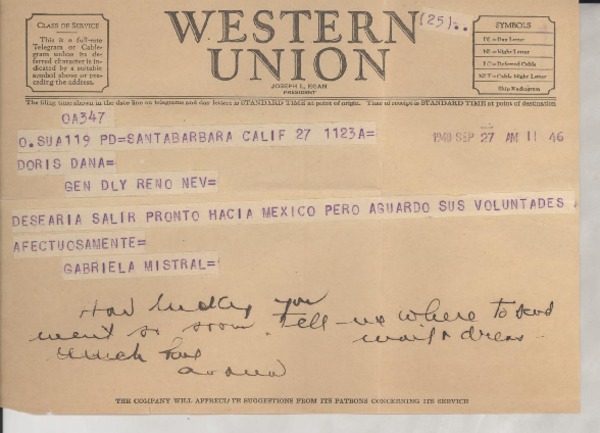 CLASS OF SERVICE
This is a full-rate
Telegram or Cable-
gram unless its de-
ferred character is in-
dicated by a suitable
symbol above or pre-
ceding the address.
WESTERN
UNION
JOSEPH L. EGAN
PRESIDENT
(25)..
SYMBOLS
DL=Day Letter
NL=Night Letter
LC=Deferred Cable
NLT=Cable Night Letter
Ship Radiogram
The filing time shown in the date line on telegrams and day letters is STANDARD TIME at point of origin. Time of receipt is STANDARD TIME at point of destination
OA347
O.SUA119 PD=SANTABARBARA CALIF 27 1123A=
1948 SEP 27 AM 11 46
DORIS DANA=
GEN DLY RENO NEV=
DESEARIA SALIR PRONTO HACIA MEXICO PERO AGUARDO SUS VOLUNTADES
AFECTUOSAMENTE=
GABRIELA MISTRAL=
How lucky you
went so soon. Tell us where to send
mail
much love
THE COMPANY WILL APPRECIATE SUGGESTIONS FROM ITS PATRONS CONCERNING ITS SERVICE